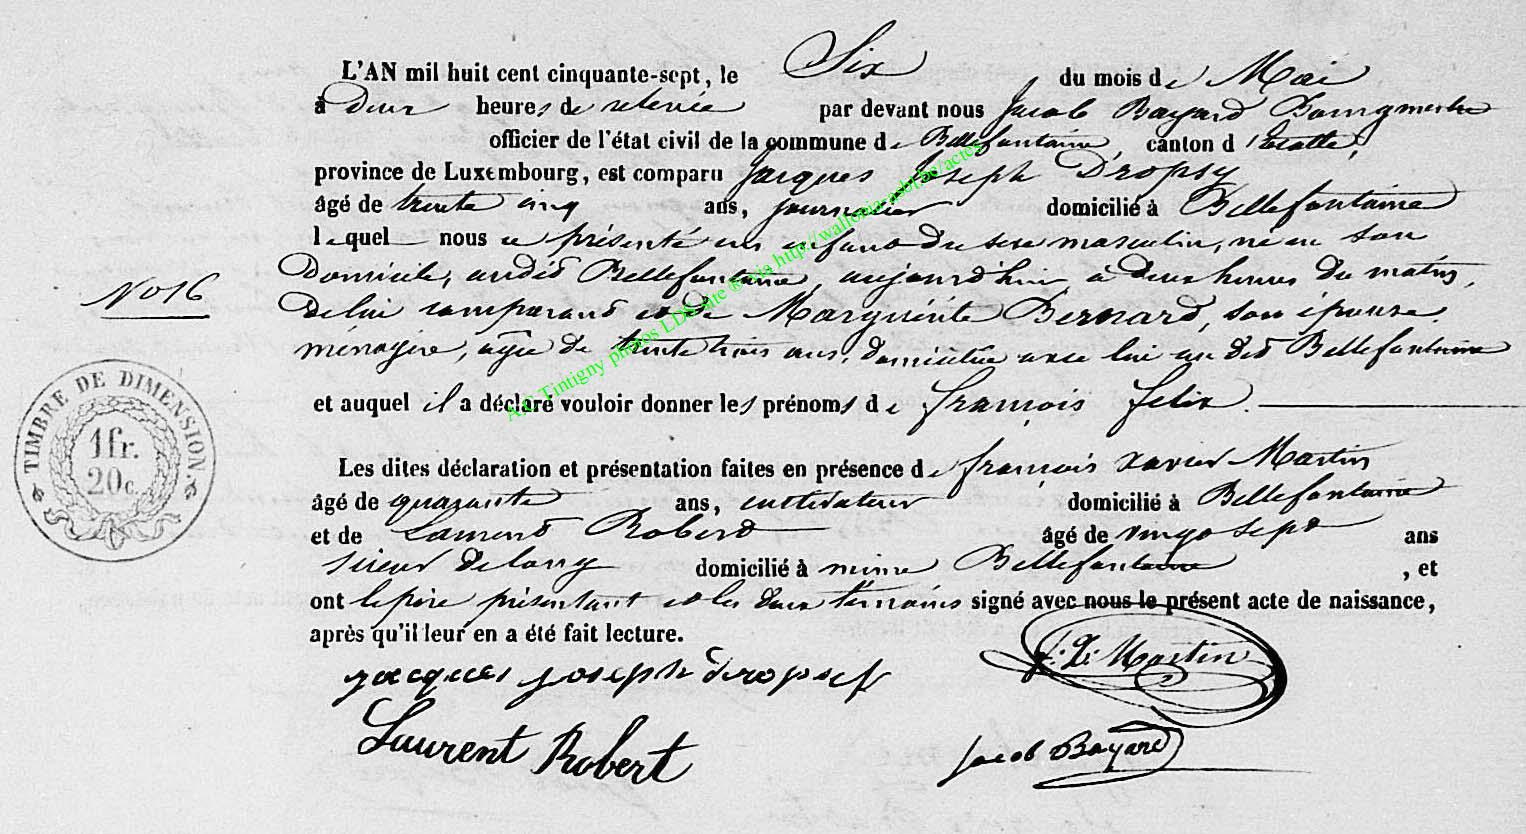 L'AN mil huit cent cinquante-sept, le Six du mois de Mai
à deux heures de relevée par devant nous Jacob Bayard Bourgmestre
officier de l'état civil de la commune de Bellefontaine, canton d'Etalle,
province de Luxembourg, est comparu Jacques Joseph Dropsy
âgé de trente cinq ans, journalier domicilié à Bellefontaine
lequel nous a présenté un enfant du sexe masculin, né en son
domicile, audit Bellefontaine, aujourd'hui, à deux heures du matin,
de lui comparant et de Marguerite Bernard, son épouse.
ménagère, agée de trente trois ans, domiciliée avec lui au dit Bellefontaine
et auquel il a déclaré vouloir donner les prénoms de françois felix.
Les dites déclaration et présentation faites en présence de françois xavier Martin
âgé de quarante ans, cultivateur domicilié à Bellefontaine
et de Laurent Robert âgé de vingt sept ans
scieur de long domicilié à même Bellefontaine, et
ont le père présentant et les deux témoins signé avec nous le présent acte de naissance,
après qu'il leur en a été fait lecture.
No 16
TIMBRE DE DIMENSION
1 fr.
20 c.
jacques joseph dropsy
f. X. Martin
Laurent Robert
Jacob Bayard
A.C Tintigny photos LDS site ® via http://wallonia-asbl.be/actes